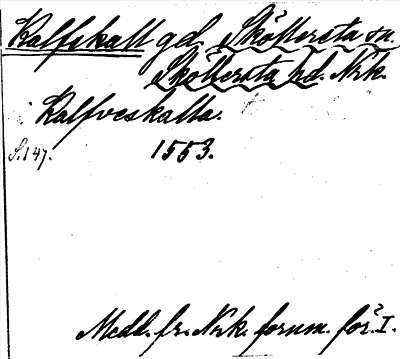 Kalfskall gd, Sköllersta sn.
Sköllersta hd. Nrk.
Kalfveskalla.
S. 147. 1553.
Medd. fr. Nrk. fornm. för. I.